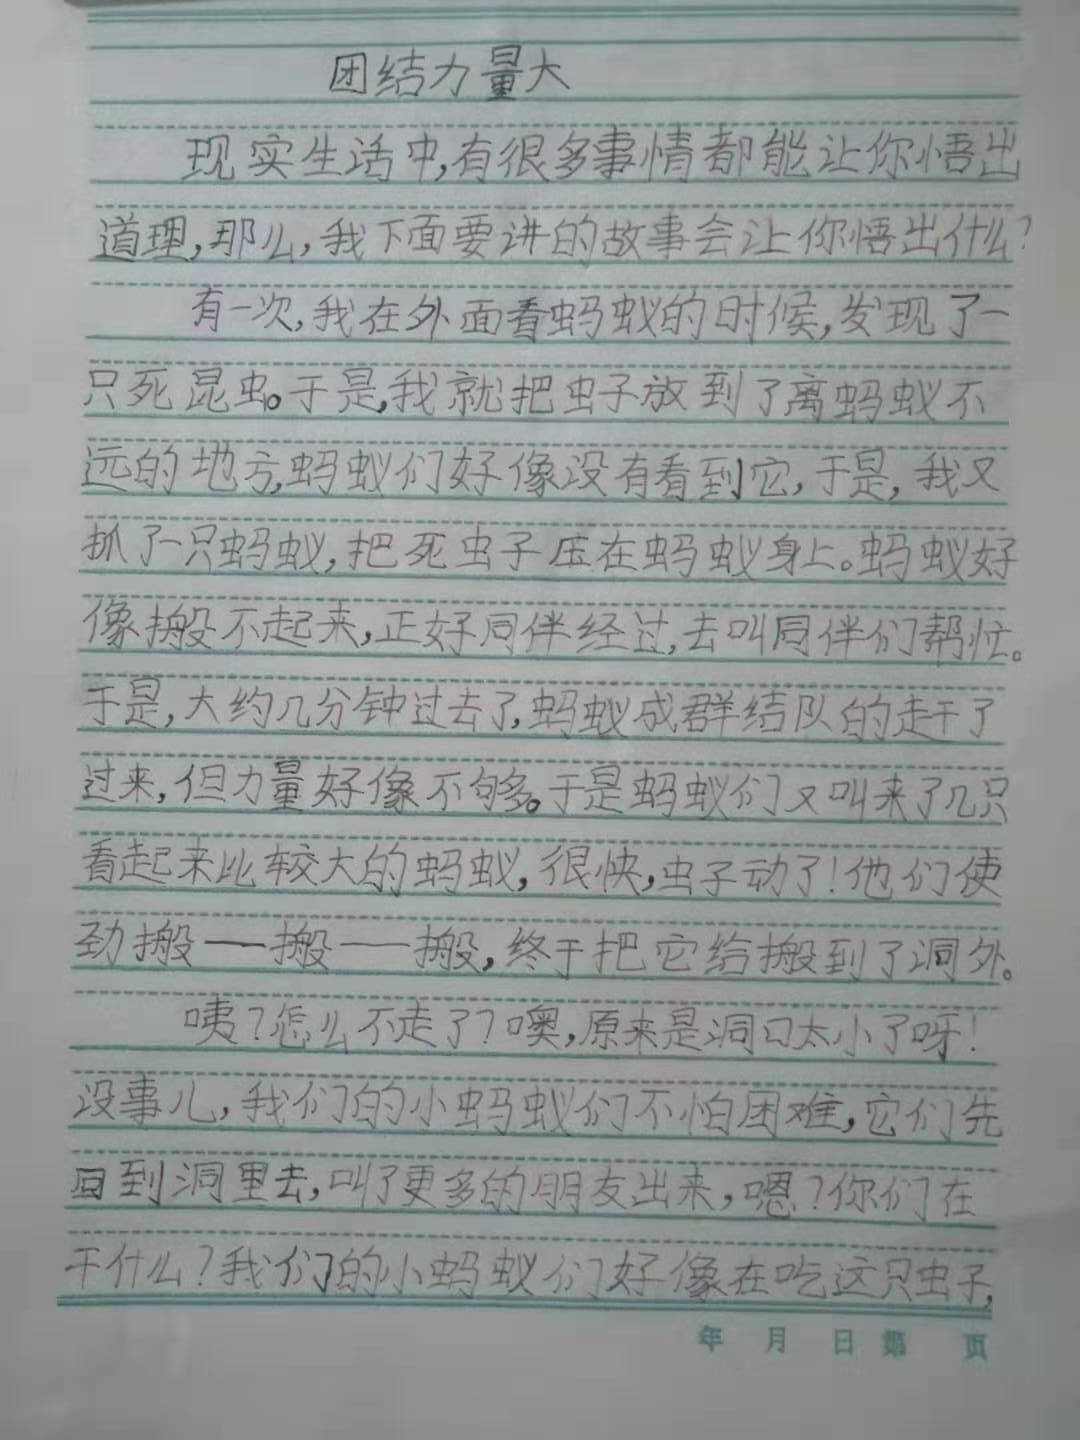 团结力量大
现实生活中,有很多事情都能让你悟出
道理,那么,我下面要讲的故事会让你悟出什么?
有一次,我在外面看蚂蚁的时候,发现了一
只死昆虫。于是,我就把虫子放到了离蚂蚁不
远的地方,蚂蚁们好像没有看到它,于是,我又
抓了一只蚂蚁,把死虫子压在蚂蚁身上。蚂蚁好
像搬不起来,正好同伴经过,去叫同伴们帮忙。
于是,大约几分钟过去了,蚂蚁成群结队的赶了
过来,但力量好像不够。于是蚂蚁们又叫来了几只
看起来比较大的蚂蚁,很快,虫子动了!他们使
劲搬——搬——搬,终于把它给搬到了洞外。
咦?怎么不走了?噢,原来是洞口太小了呀!
没事儿,我们的小蚂蚁们不怕困难,它们先
回到洞里去,叫了更多的朋友出来,嗯?你们在
干什么?我们的小蚂蚁们好像在吃这只虫子,
年 月 日 第 页